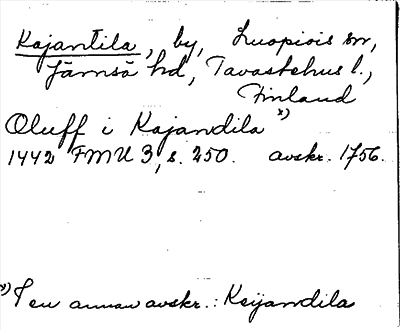 Kajantila, by, Luopiois sn,
Jämsä hd, Tavastehus l.,
Finland
Oluff i Kajandila x)
1442 FMU 3, s. 250. avskr. 1756.
x) I en annan avskr.: Keijandila